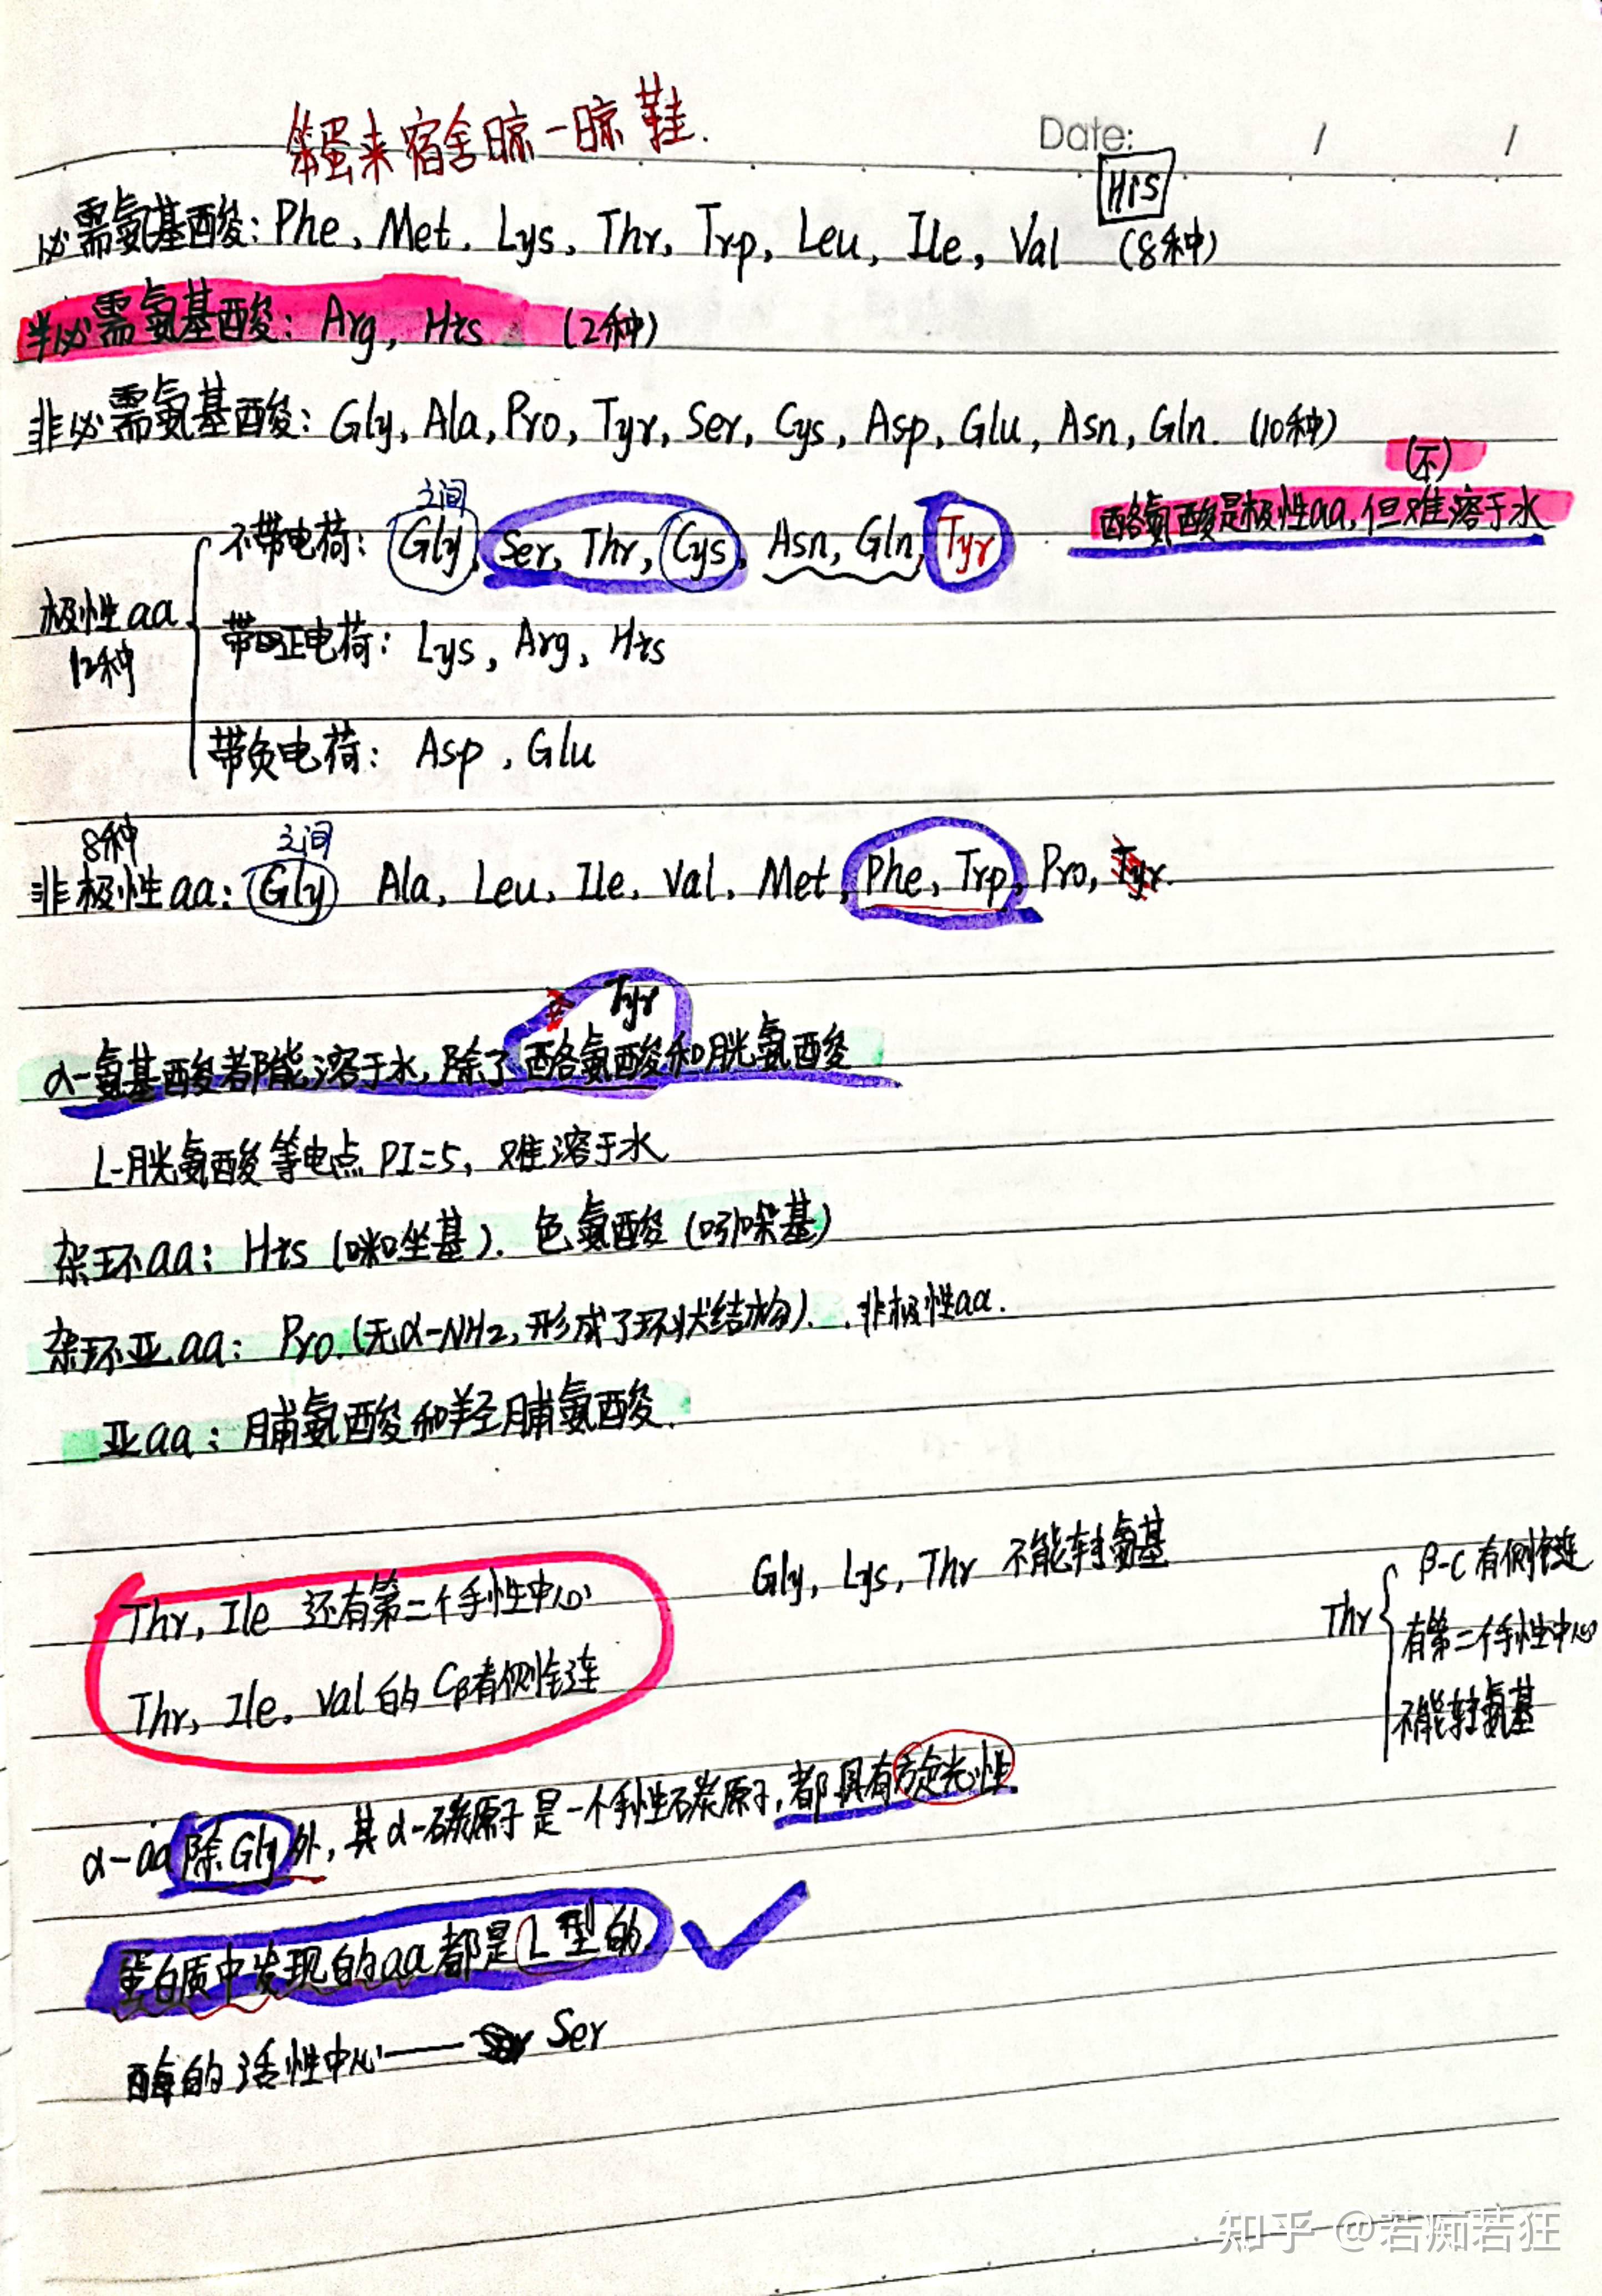 笨蛋来宿舍晾一晾鞋.
Date: / /
His
必需氨基酸: Phe, Met, Lys, Thr, Trp, Leu, Ile, Val (8种)
半必需氨基酸: Arg, His (2种)
非必需氨基酸: Gly, Ala, Pro, Tyr, Ser, Cys, Asp, Glu, Asn, Gln. (10种)
(不)
之间
不带电荷: Gly, Ser, Thr, Cys, Asn, Gln, Tyr 酪氨酸是极性aa, 但难溶于水
极性aa
12种
带正电荷: Lys, Arg, His
带负电荷: Asp, Glu
8种 之间
非极性aa: Gly Ala, Leu, Ile, Val, Met, Phe, Trp, Pro, Tyr.
Tyr
α-氨基酸都能溶于水, 除了酪氨酸和胱氨酸
L-胱氨酸等电点 PI=5, 难溶于水
杂环aa: His (咪唑基). 色氨酸 (吲哚基)
杂环亚aa: Pro. (无α-NH2, 形成了环状结构). 非极性aa.
亚aa: 脯氨酸和羟脯氨酸.
Thr, Ile 还有第二个手性中心
Thr, Ile, Val 的 Cβ有侧连
Gly, Lys, Thr 不能转氨基
Thr
β-C有侧连
有第二个手性中心
不能转氨基
α-aa除Gly外, 其α-碳原子是一个手性碳原子, 都具有旋光性.
蛋白质中发现的aa都是L型的
酶的活性中心—— Ser
知乎 @若痴若狂